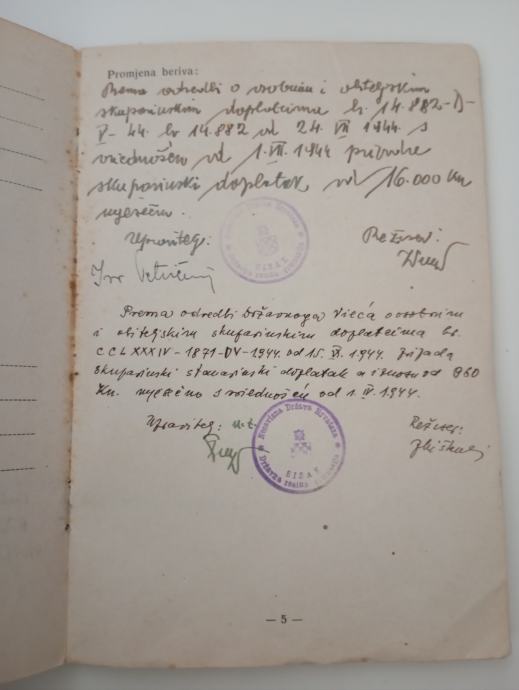 Promjena beriva:
Prema odredbi o osobnim i obiteljskim
skuparinskim doplatcima br. 14.882-D-
V-44. br 14.882 od 24. VII 1944 s
vriednošću od 1. VII. 1944 pripada
skuparinski doplatak od 16.000 Kn
mjesečno.
Upravitelj:
Nezavisna Država Hrvatska
SISAK
Prema odredbi Državnoga vieća o osobnim
i obiteljskim skuparinskim doplatcima br.
CCLXXXIV-1871-DV-1944. od 15. VI. 1944. pripada
skuparinski stanarinski doplatak u iznosu od 960
Kn. mjesečno s vriednošću od 1. IV. 1944.
Upravitelj:
Nezavisna Država Hrvatska
Državna realna gimnazija
SISAK
— 5 —